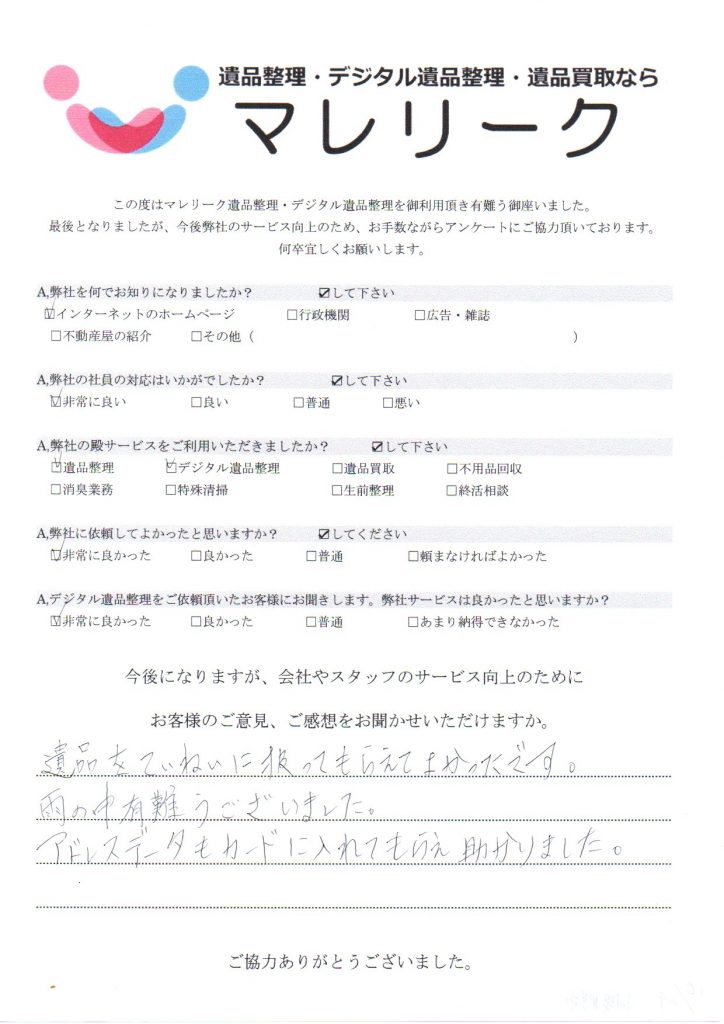 遺品整理・デジタル遺品整理・遺品買取なら
マレリーク
この度はマレリーク遺品整理・デジタル遺品整理を御利用頂き有難う御座いました。
最後となりましたが、今後弊社のサービス向上のため、お手数ながらアンケートにご協力頂いております。
何卒宜しくお願いします。
A,弊社を何でお知りになりましたか？ ☑して下さい
☑インターネットのホームページ □行政機関 □広告・雑誌
□不動産屋の紹介 □その他（ ）
A,弊社の社員の対応はいかがでしたか？ ☑して下さい
☑非常に良い □良い □普通 □悪い
A,弊社の殿サービスをご利用いただきましたか？ ☑して下さい
☑遺品整理 ☑デジタル遺品整理 □遺品買取 □不用品回収
□消臭業務 □特殊清掃 □生前整理 □終活相談
A,弊社に依頼してよかったと思いますか？ ☑してください
☑非常に良かった □良かった □普通 □頼まなければよかった
A,デジタル遺品整理をご依頼頂いたお客様にお聞きします。弊社サービスは良かったと思いますか？
☑非常に良かった □良かった □普通 □あまり納得できなかった
今後になりますが、会社やスタッフのサービス向上のために
お客様のご意見、ご感想をお聞かせいただけますか。
遺品をていねいに扱ってもらえてよかったです。
雨の中有難うございました。
アドレスデータもカードに入れてもらえ助かりました。
ご協力ありがとうございました。